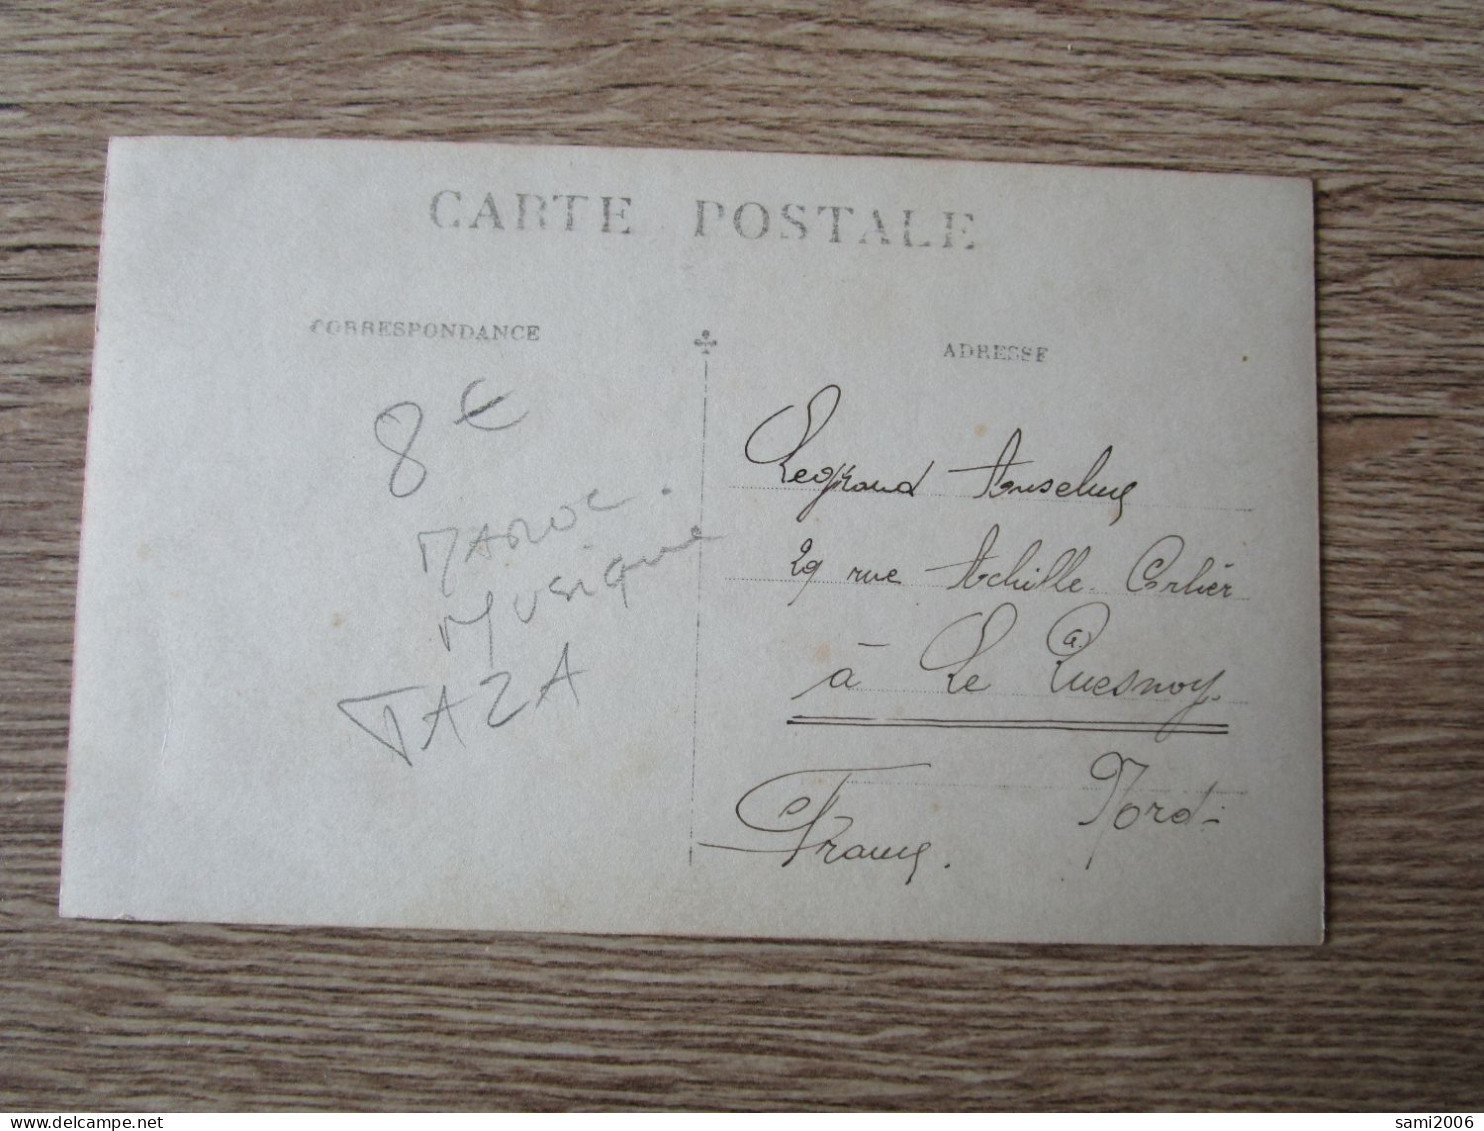 CARTE POSTALE
CORRESPONDANCE
ADRESSE
8 €
MAROC.
Musique
TAZA
Legrand Anselme
29 rue Achille Carlier
à Le Quesnoy.
Nord
France.
sami2006